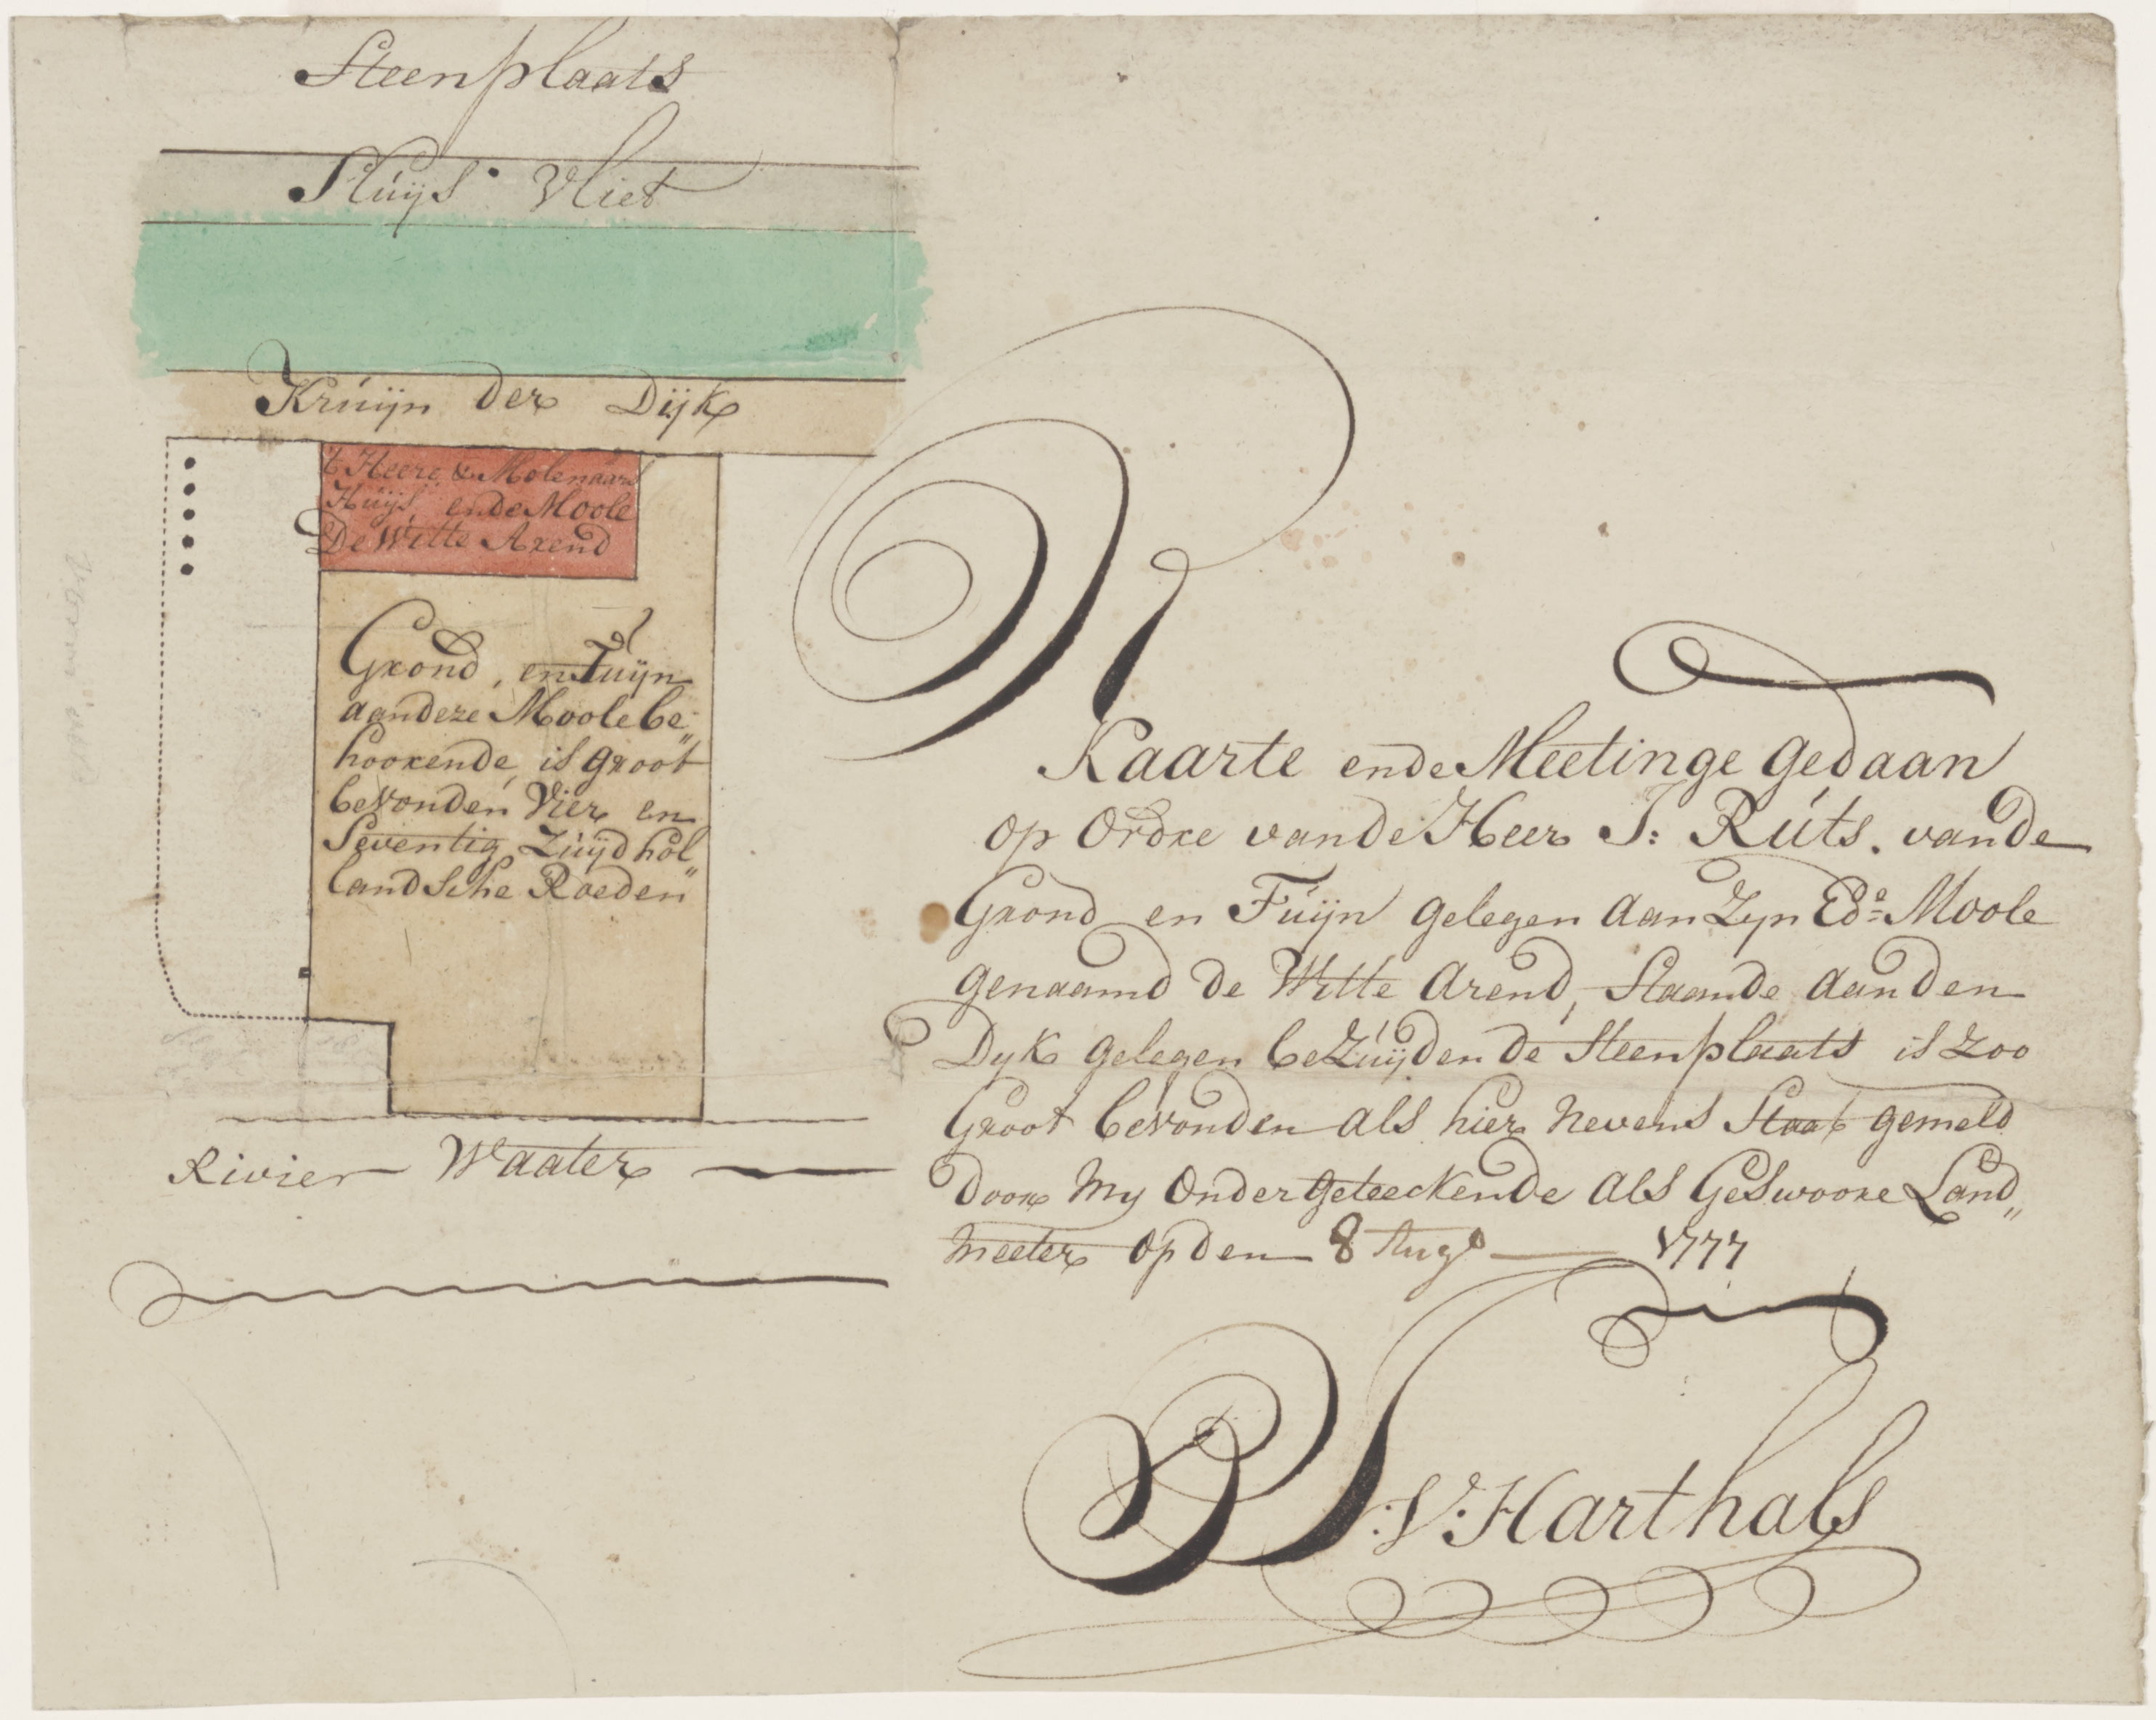 Steenplaats
Sluijs Vliet
Kruijn der Dijk
't Heere & Molenaars
Huijs ende Moole
De Witte Arend
Grond, en Tuijn
aan deze Moole be„
hoorende, is groot
bevonden Vier en
Seventig Zuijdhol„
landsche Roeden
Rivier Waater
Kaarte ende Meetinge gedaan
op Ordre vande Heer J: Ruts. vande
Grond en Tuijn gelegen aan Zyn Ede Moole
genaamd de Witte Arend, Staande aan den
Dyk gelegen beZuijden de Steenplaats is zoo
Groot bevonden als hier nevens Staat gemeld
door My Ondergeteeckende als Geswoore Land„
meeter op den 8 Augo 1777
V: Harthals